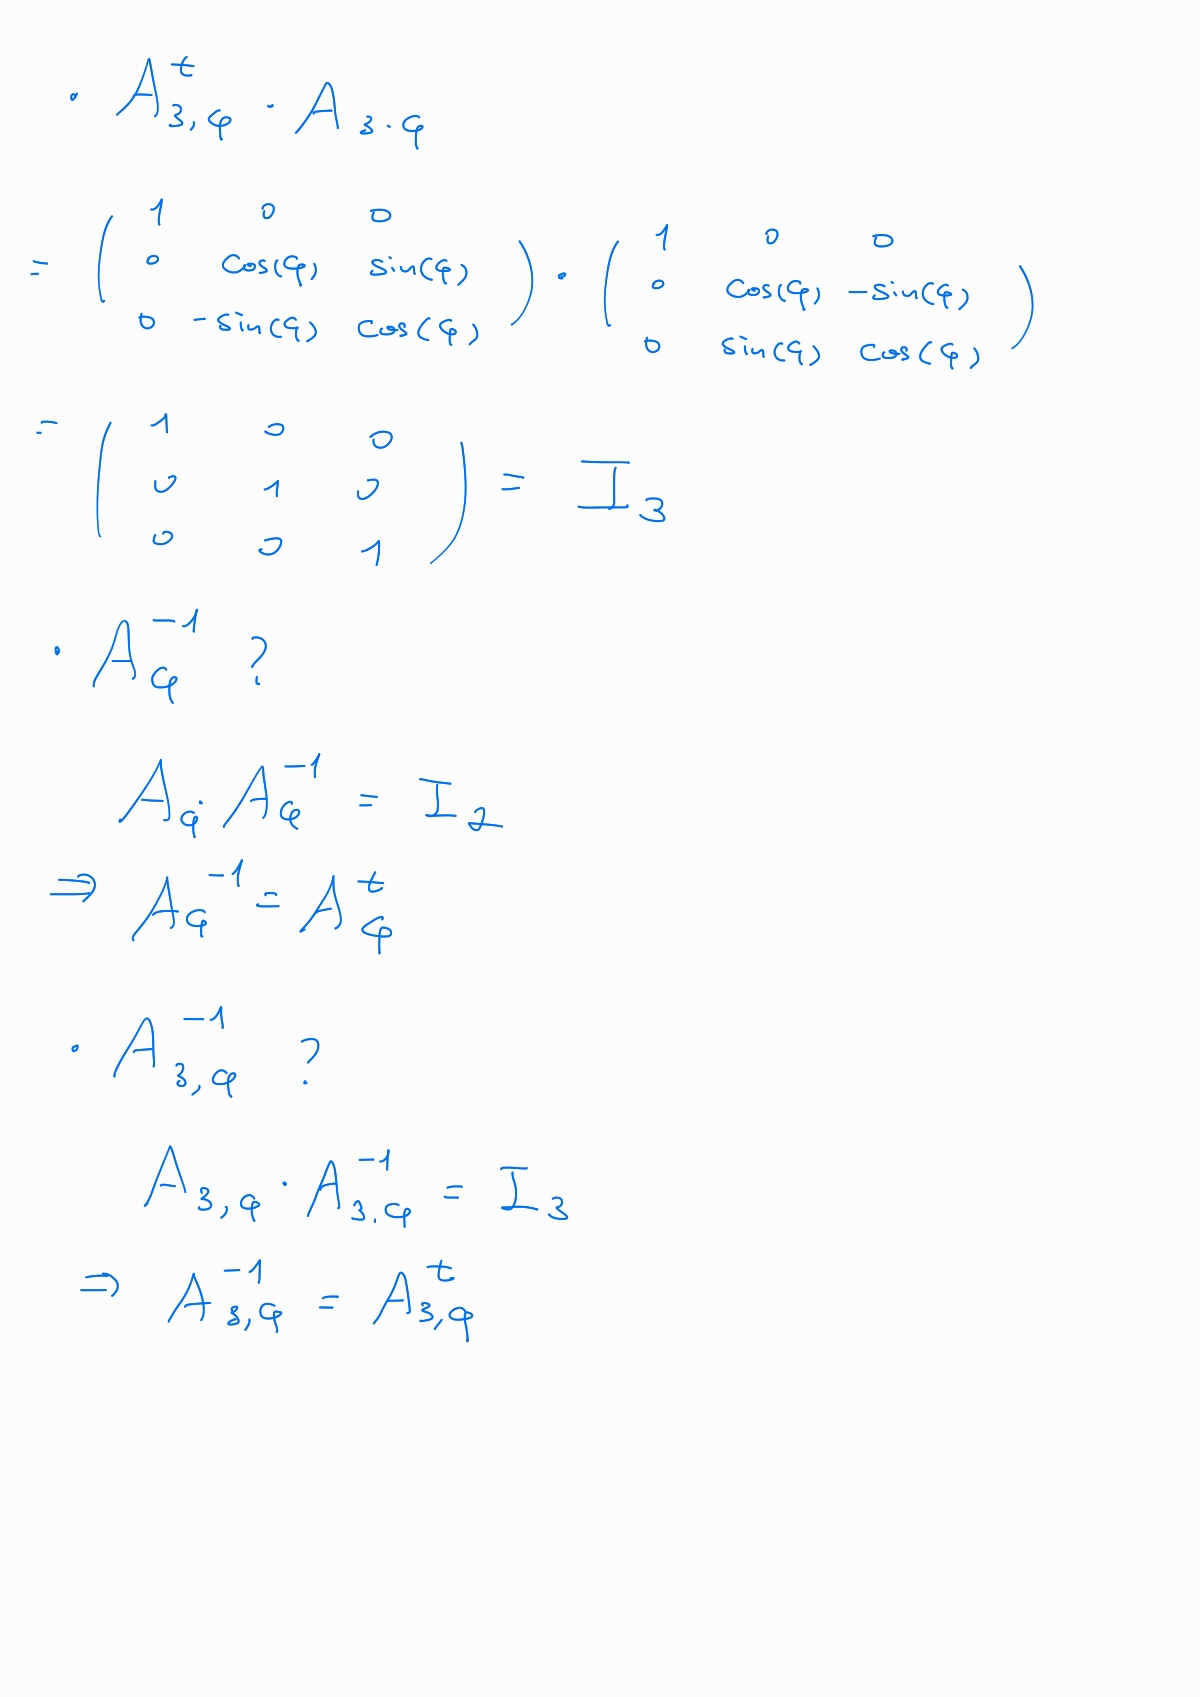 · A^t_{3,φ} · A_{3·φ}
= ( 1 0 0
0 cos(φ) sin(φ)
0 -sin(φ) cos(φ) ) · ( 1 0 0
0 cos(φ) -sin(φ)
0 sin(φ) cos(φ) )
= ( 1 0 0
0 1 0
0 0 1 ) = I_3
· A_φ^{-1} ?
A_φ · A_φ^{-1} = I_2
⇒ A_φ^{-1} = A^t_φ
· A_{3,φ}^{-1} ?
A_{3,φ} · A_{3.φ}^{-1} = I_3
⇒ A_{3,φ}^{-1} = A^t_{3,φ}